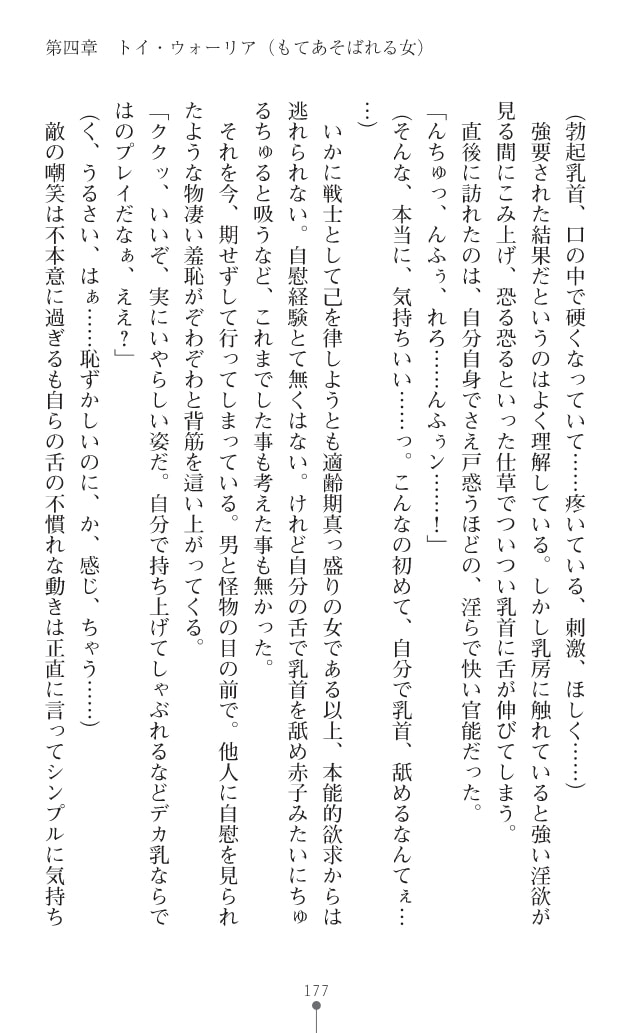 第四章　トイ・ウォーリア（もてあそばれる女）
（勃起乳首、口の中で硬くなっていて……疼いている、刺激、ほしく……）
　強要された結果だというのはよく理解している。しかし乳房に触れていると強い淫欲が
見る間にこみ上げ、恐る恐るといった仕草でついつい乳首に舌が伸びてしまう。
　直後に訪れたのは、自分自身でさえ戸惑うほどの、淫らで快い官能だった。
「んちゅっ、んふぅ、れろ……んふぅン……！」
（そんな、本当に、気持ちいい……っ。こんなの初めて、自分で乳首、舐めるなんてぇ…
…）
　いかに戦士として己を律しようとも適齢期真っ盛りの女である以上、本能的欲求からは
逃れられない。自慰経験とて無くはない。けれど自分の舌で乳首を舐め赤子みたいにちゅ
るちゅると吸うなど、これまでした事も考えた事も無かった。
　それを今、期せずして行ってしまっている。男と怪物の目の前で。他人に自慰を見られ
たような物凄い羞恥がぞわぞわと背筋を這い上がってくる。
「ククッ、いいぞ、実にいやらしい姿だ。自分で持ち上げてしゃぶれるなどデカ乳ならで
はのプレイだなぁ、ええ？」
（く、うるさい、はぁ……恥ずかしいのに、か、感じ、ちゃう……）
　敵の嘲笑は不本意に過ぎるも自らの舌の不慣れな動きは正直に言ってシンプルに気持ち
177